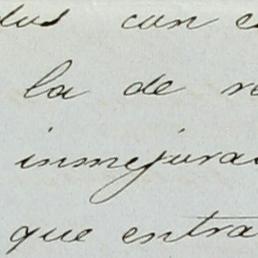 dos con
la de
inmejora
que entra